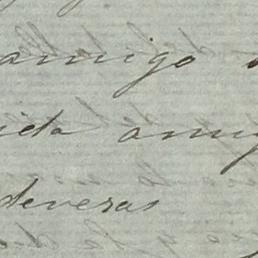 amigo
ida amig
deveras